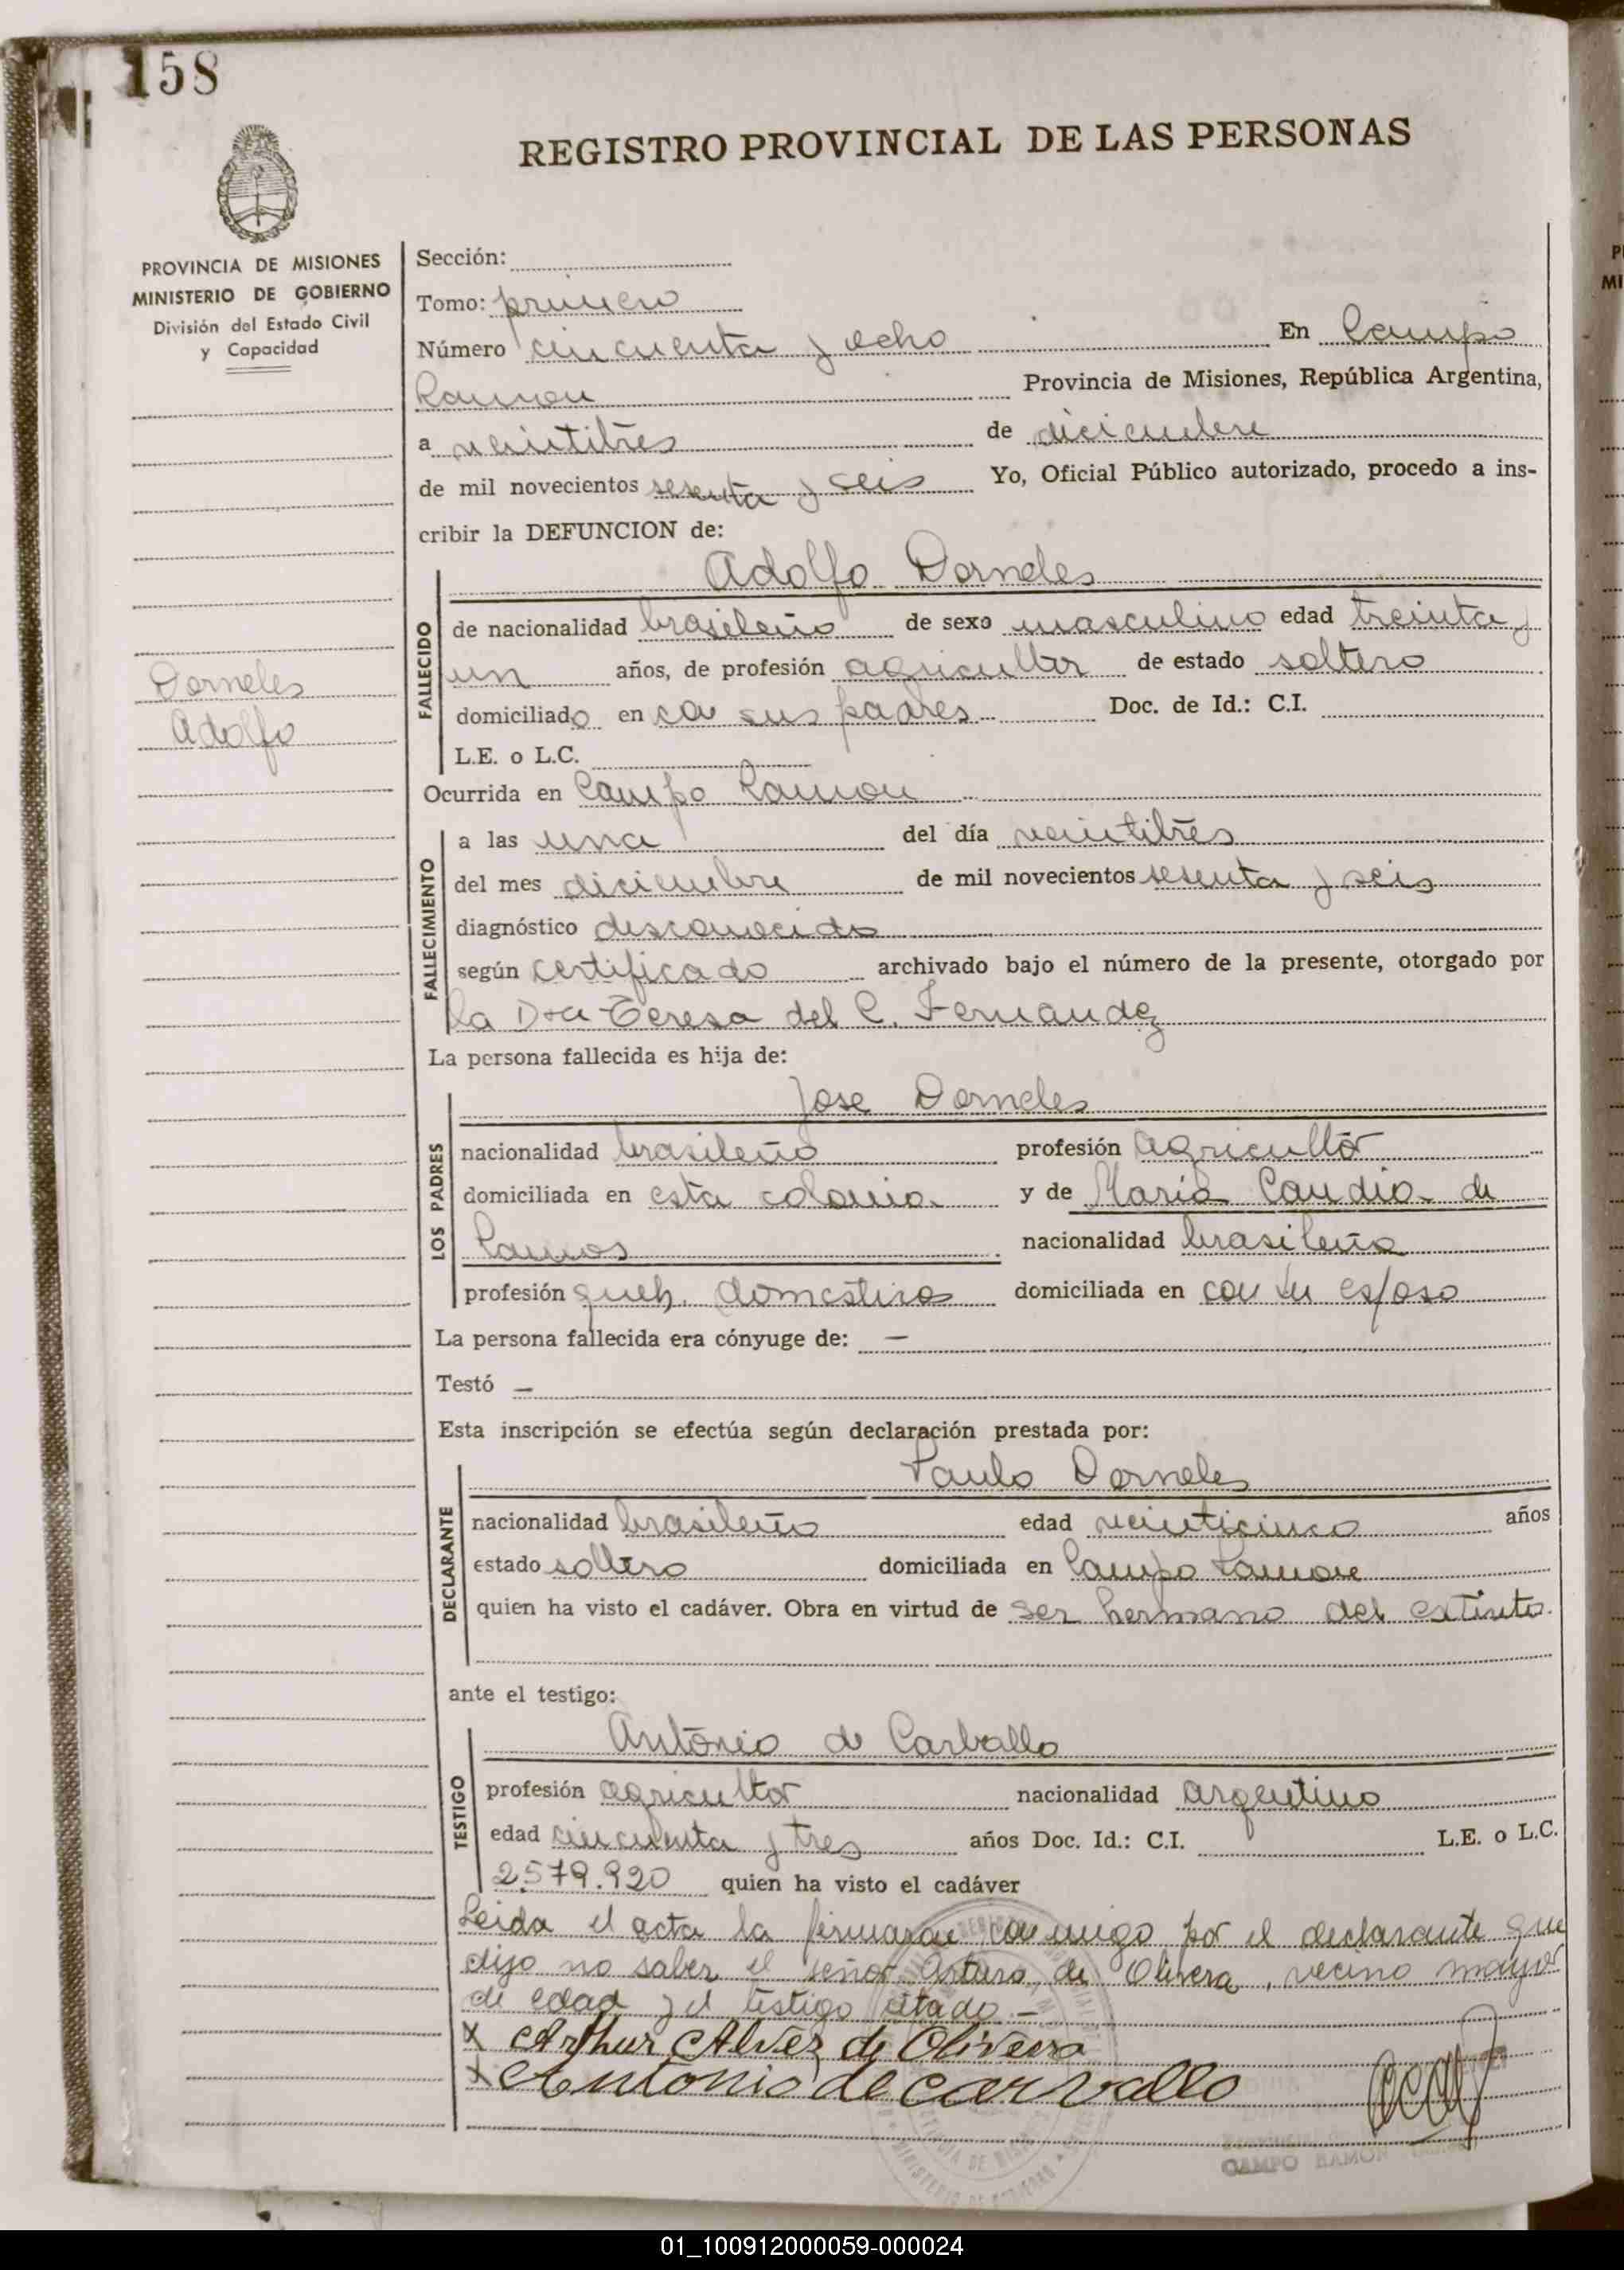 158
REGISTRO PROVINCIAL DE LAS PERSONAS
PROVINCIA DE MISIONES
MINISTERIO DE GOBIERNO
División del Estado Civil
y Capacidad
Dorneles
Adolfo
Sección:
Tomo: primero
Número cincuenta y ocho En Campo
Ramon Provincia de Misiones, República Argentina,
a veintitres de diciembre
de mil novecientos sesenta y seis Yo, Oficial Público autorizado, procedo a ins-
cribir la DEFUNCION de:
FALLECIDO
Adolfo Dorneles
de nacionalidad brasileño de sexo masculino edad treinta y
un años, de profesión agricultor de estado soltero
domiciliado en con sus padres Doc. de Id.: C.I.
L.E. o L.C.
Ocurrida en Campo Ramon
FALLECIMIENTO
a las una del día veintitres
del mes diciembre de mil novecientos sesenta y seis
diagnóstico desconocido
según certificado archivado bajo el número de la presente, otorgado por
la Dra Teresa del C. Fernandez
La persona fallecida es hija de:
LOS PADRES
Jose Dorneles
nacionalidad brasileño profesión agricultor
domiciliada en esta colonia y de Maria Candia de
Ramos nacionalidad brasileña
profesión queh. domesticos domiciliada en con su esposo
La persona fallecida era cónyuge de: —
Testó —
Esta inscripción se efectúa según declaración prestada por:
DECLARANTE
Paulo Dorneles
nacionalidad brasileño edad veinticinco años
estado soltero domiciliada en Campo Ramon
quien ha visto el cadáver. Obra en virtud de ser hermano del extinto.
ante el testigo:
TESTIGO
Antonio de Carballo
profesión agricultor nacionalidad argentino
edad cincuenta y tres años Doc. Id.: C.I. L.E. o L.C.
2.579.920 quien ha visto el cadáver
Leida el acta la firmaron conmigo por el declarante que
dijo no saber el señor Arturo de Olivera, vecino mayor
de edad y el testigo citado.—
x Arthur Alvez di Oliveira
x Antonio de carvallo
CAMPO RAMON
01_100912000059-000024